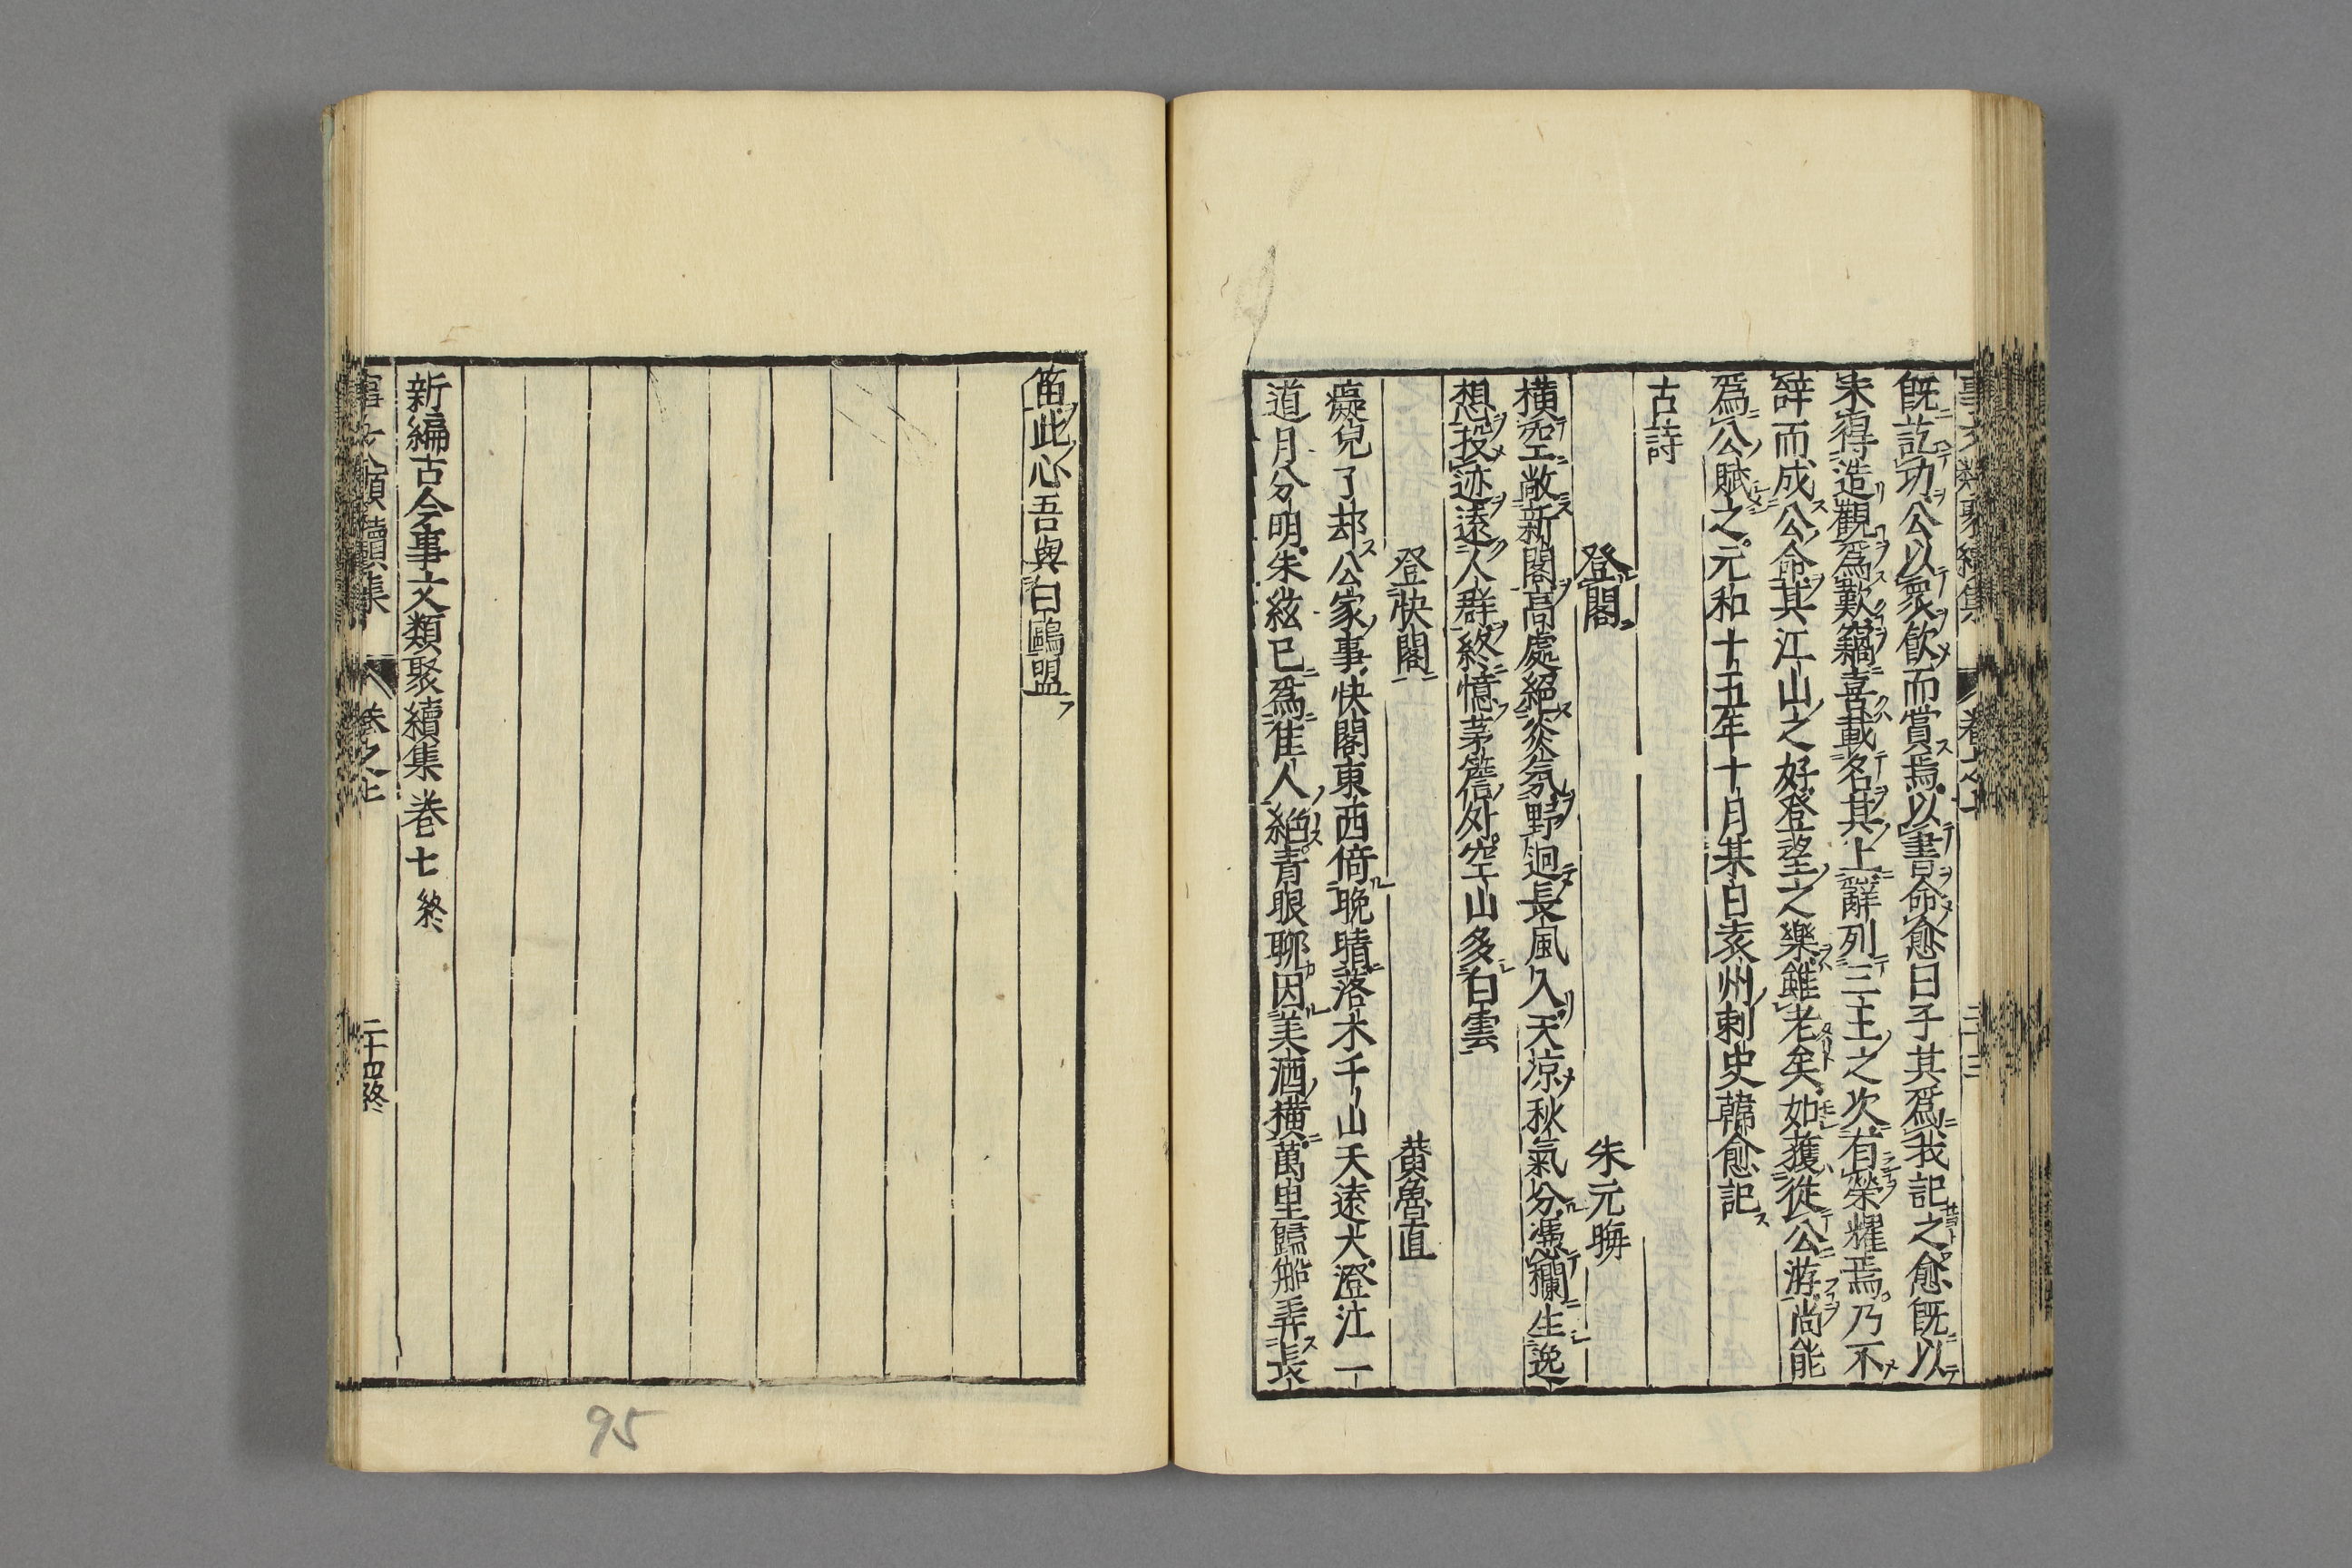 事文類聚續集 卷之七 二十三
既訖功公以衆飮而賞焉以書命愈曰子其爲我記之愈既以
未得造觀爲歎竊喜載名其上詳列三王之次有榮耀焉乃不
辭而成公命其江山之好登望之樂雖老矣如獲從公游尚能
爲公賦之元和十五年十月某日袁州刺史韓愈記
古詩
登閣 朱元晦
橫空敞新閣高處絕炎氛野迥長風久天凉秋氣分憑欄生逸
想投迹遠人群終憶茅簷外空山多白雲
登快閣 黄魯直
癡兒了却公家事快閣東西倚晚晴落木千山天遠大澄江一
道月分明朱絃已爲佳人絕青眼聊因美酒橫萬里歸船弄長
笛此心吾與白鷗盟
新編古今事文類聚續集卷七終
事文類聚續集 卷之七 二十四終
95